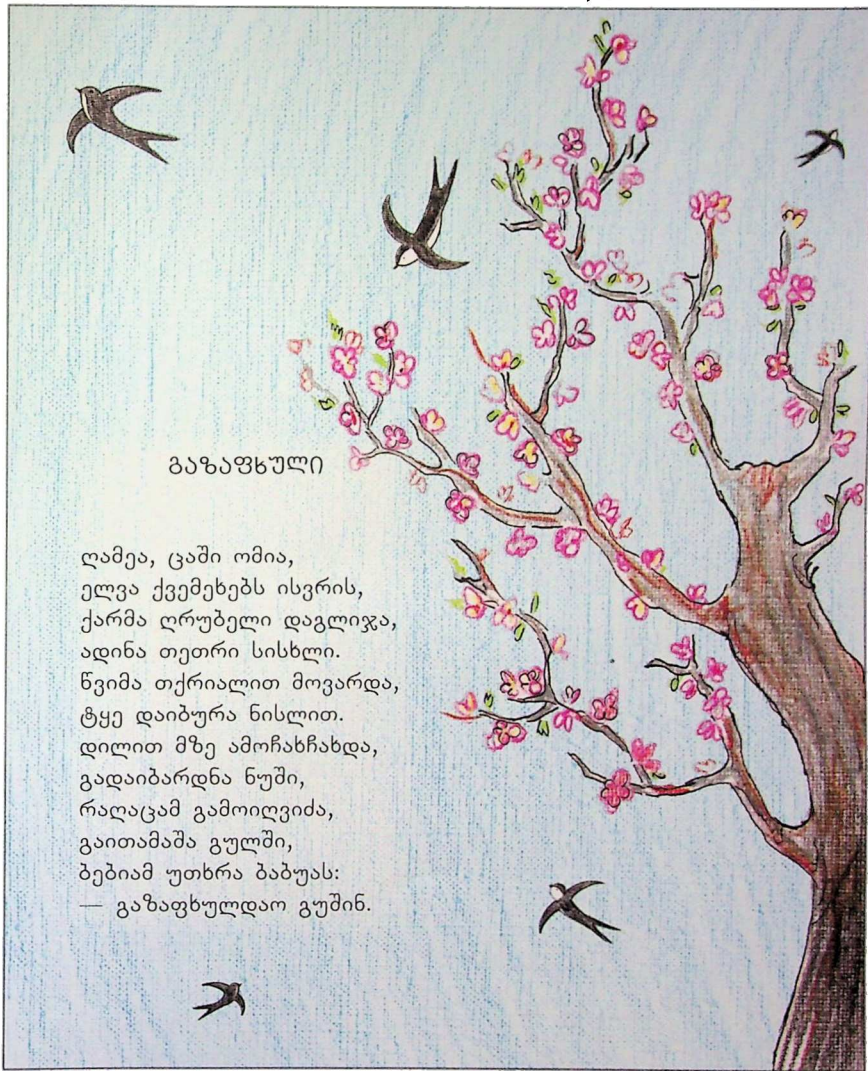 ᲒᲐᲖᲐᲤᲮᲣᲚᲘ
ღამეა, ცაში ომია,
ელვა ქვემეხებს ისვრის,
ქარმა ღრუბელი დაგლიჯა,
ადინა თეთრი სისხლი.
წვიმა თქრიალით მოვარდა,
ტყე დაიბურა ნისლით.
დილით მზე ამოჩახჩახდა,
გადაიბარდნა ნუში,
რაღაცამ გამოიღვიძა,
გაითამაშა გულში,
ბებიამ უთხრა ბაბუას:
— გაზაფხულდაო გუშინ.